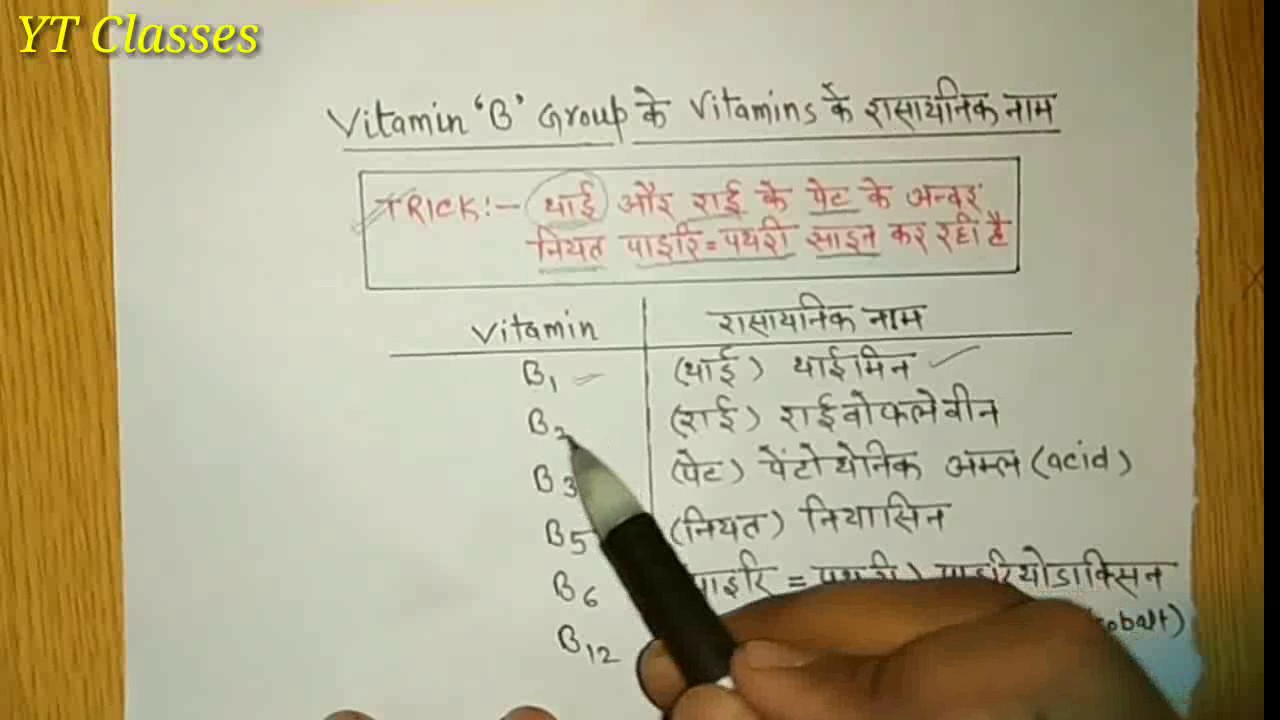 YT Classes
Vitamin 'B' Group के Vitamins के रासायनिक नाम
TRICK:- थाई और राई के पेट के अन्दर
नियत पाइरि = पथरी साइन कर रही है
Vitamin रासायनिक नाम
B1 (थाई) थाईमिन
B2 (राई) राईवोफ्लेवीन
B3 (पेट) पेंटोथेनिक अम्ल (acid)
B5 (नियत) नियासिन
B6 पाइरि = पथरी) पाइरियोडाक्सिन
B12 cobalt)